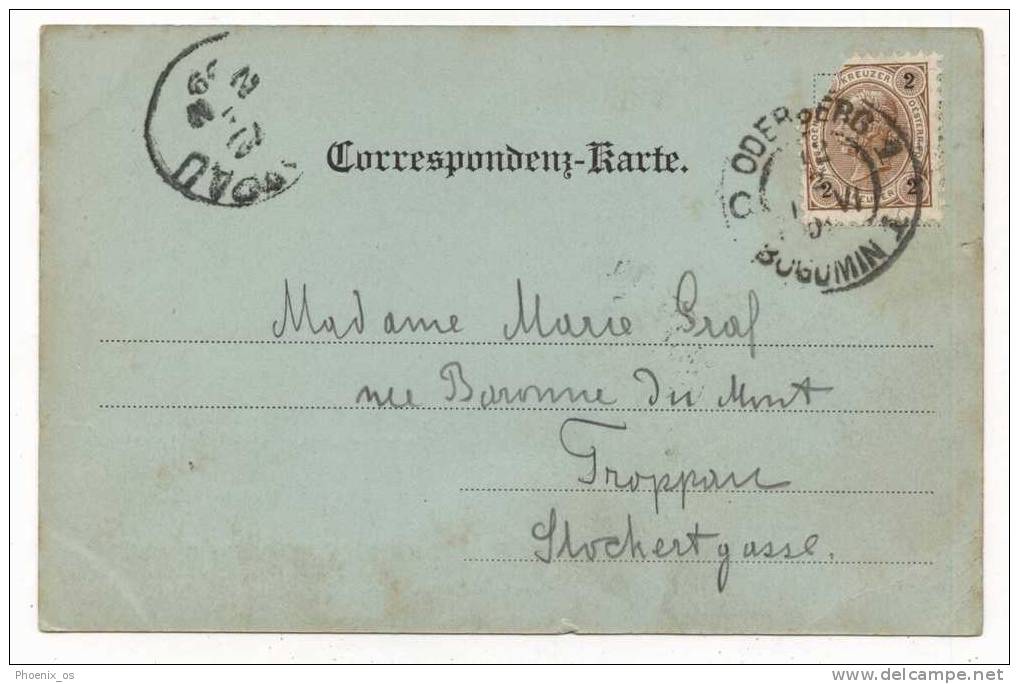 Correspondenz-Karte.
KREUZER
2
2
2
ODERBERG
BOGUMIN
Madame Marie Graf
née Baronne Du Mont
Troppau
Stockertgasse.
Phoenix_os
delcampe.net